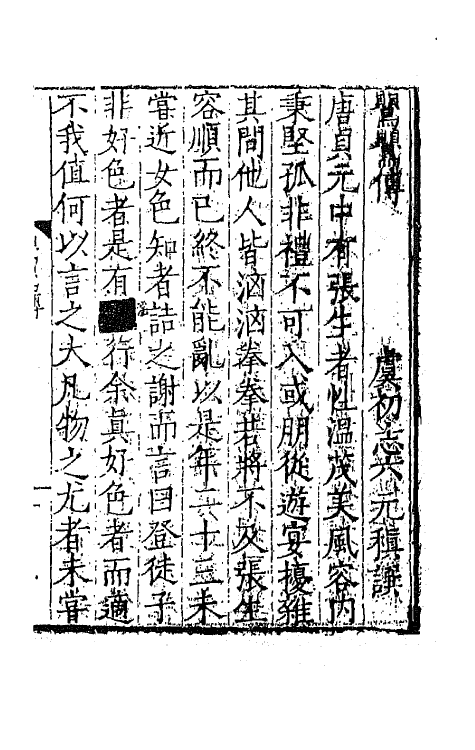 鶯鶯傳 虞初志六 元稹譔
唐貞元中有張生者性溫茂美風容内
秉堅孤非禮不可入或朋從遊宴擾雜
其間他人皆洶洶拳拳若將不及張生
容順而已終不能亂以是年二十三未
嘗近女色知者詰之謝而言曰登徒子
非好色者是有行余真好色者而適
不我值何以言之大凡物之尤者未嘗